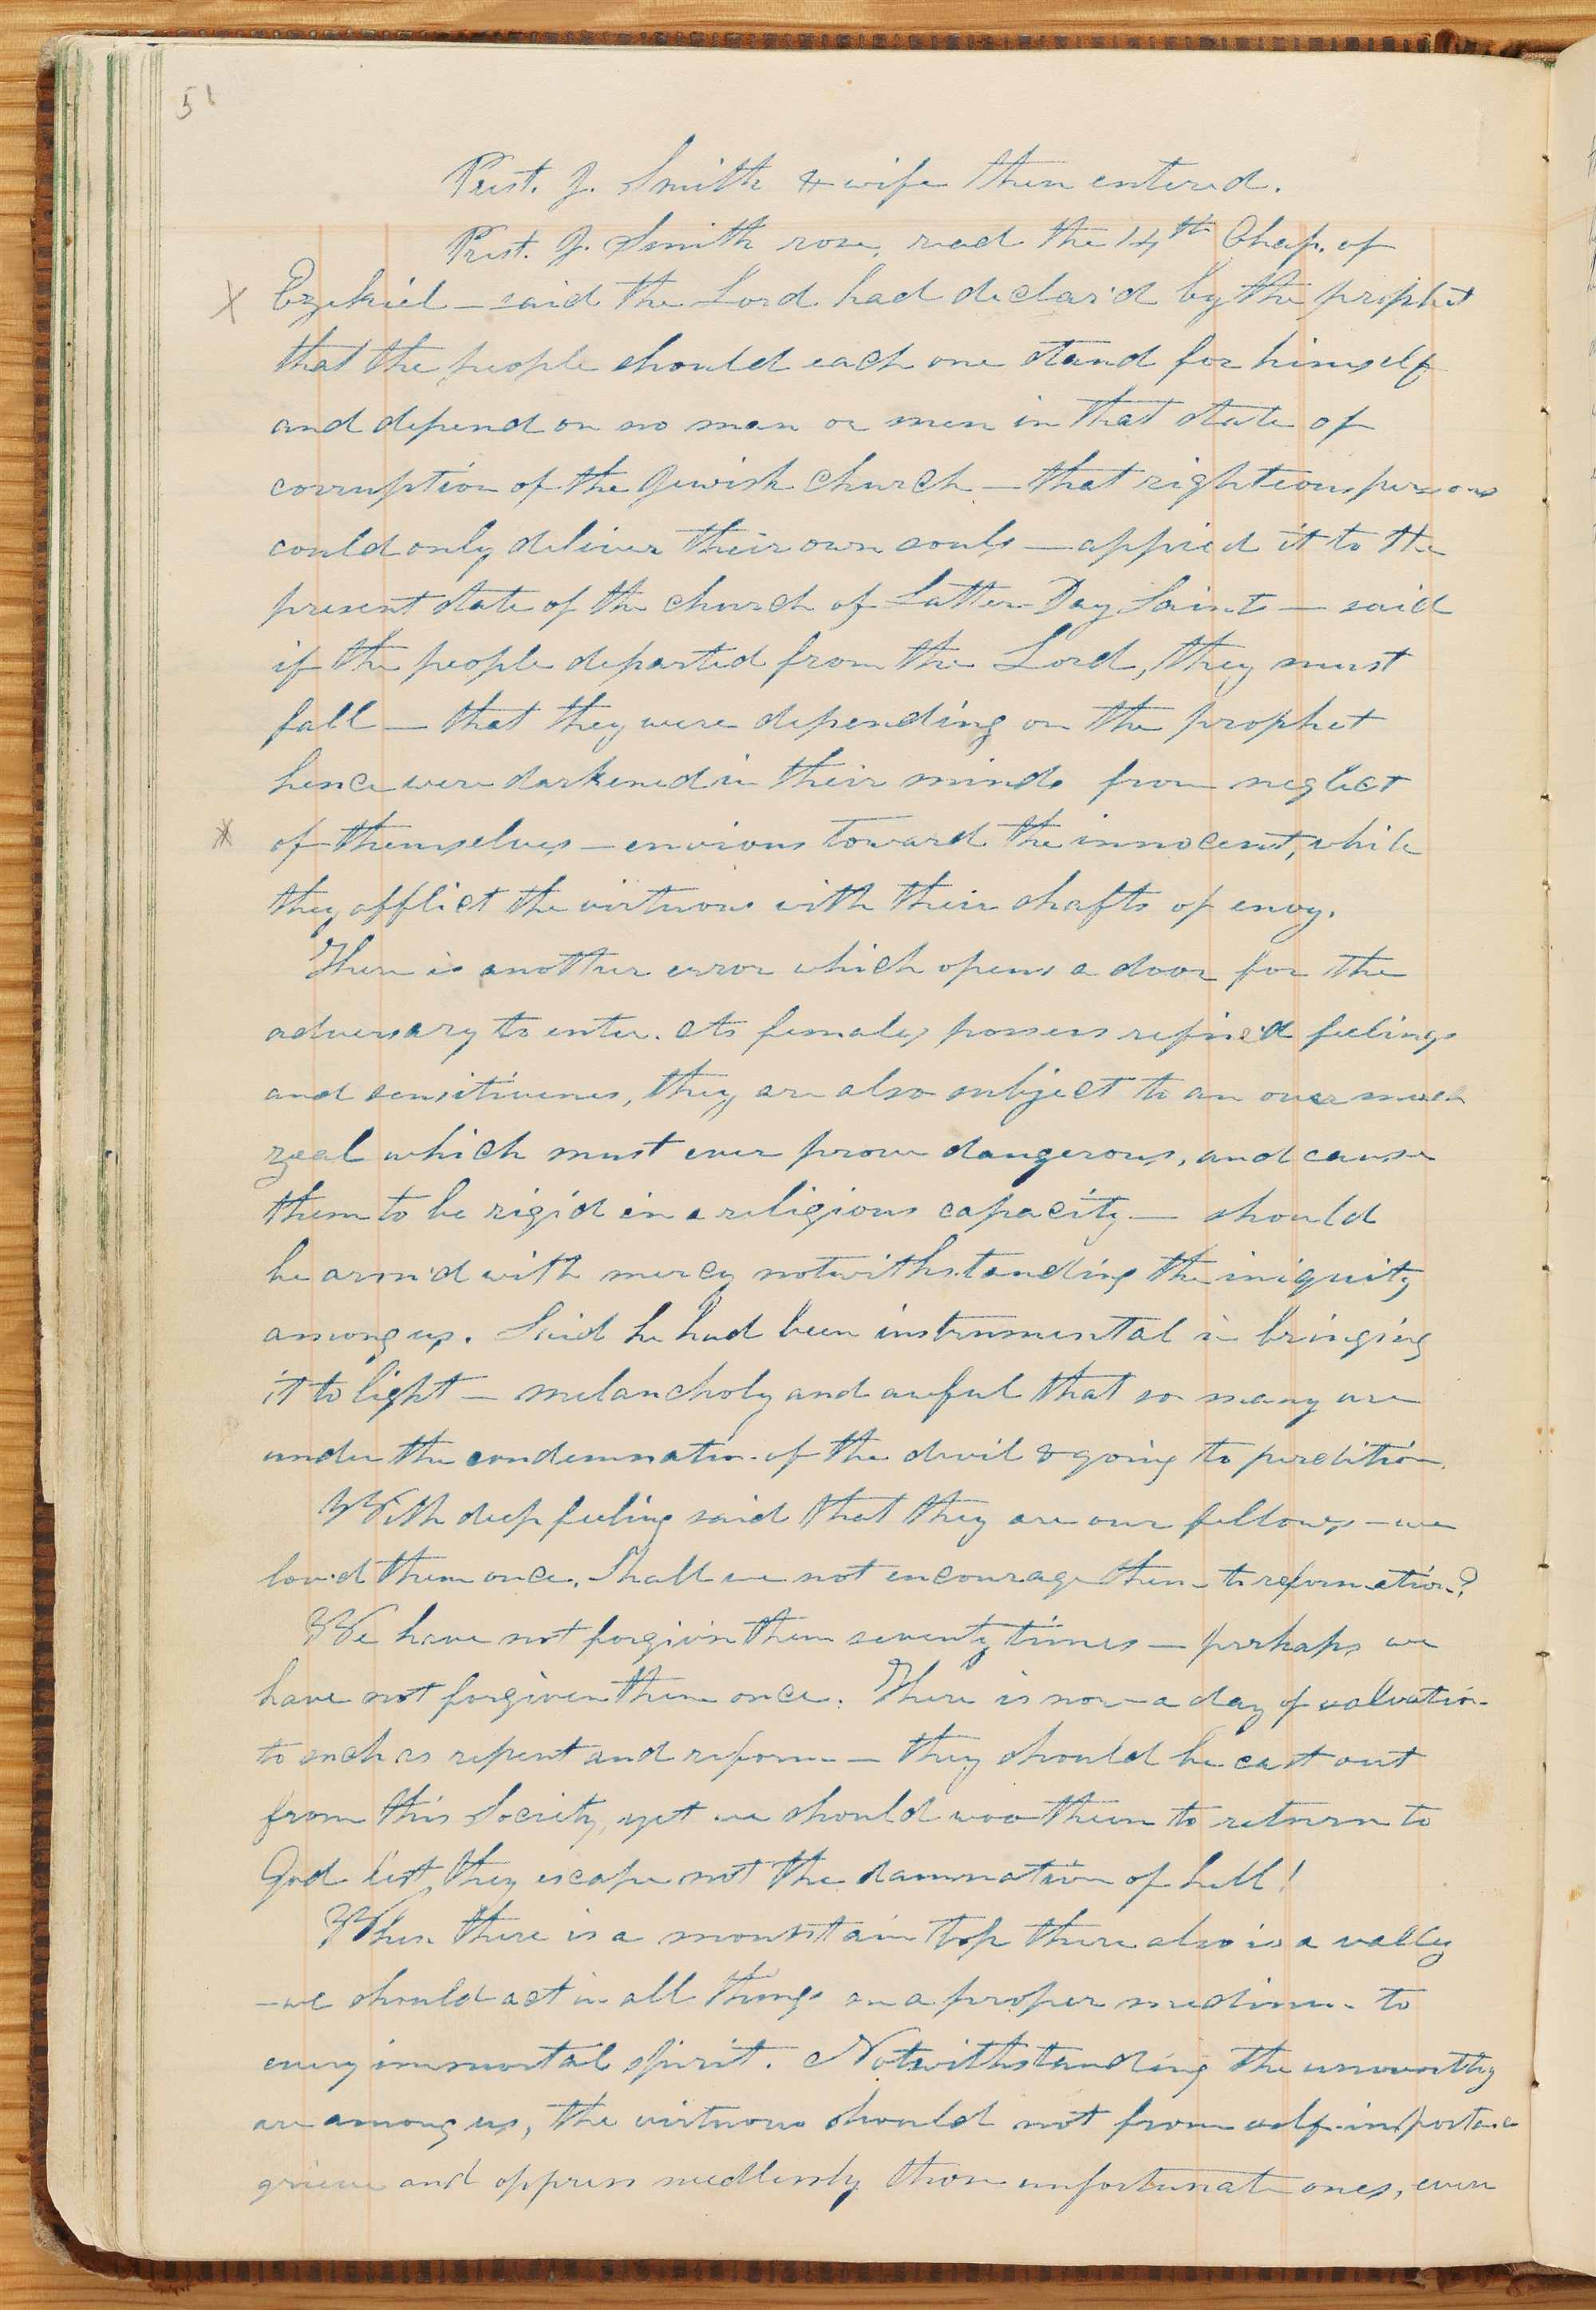 51
Prest. J. Smith & wife then entered.
Prest. J. Smith rose, read the 14th Chap. of
X Ezekiel — said the Lord had declar'd by the prophet
that the people should each one stand for himself
and depend on no man or men in that state of
corruption of the Jewish church — that righteous persons
could only deliver their own souls — applied it to the
present state of the church of Latter-Day Saints — said
if the people departed from the Lord, they must
fall — that they were depending on the prophet
hence were darkened in their minds from neglect
of themselves — envious toward the innocent, while
they afflict the virtuous with their shafts of envy.
There is another error which opens a door for the
adversary to enter. As females possess refined feelings
and sensitivenes, they are also subject to an over much
zeal which must ever prove dangerous, and cause
them to be rigid in a religious capacity — should
be arm'd with mercy notwithstanding the iniquity
among us. Said he had been instrumental in bringing
it to light — melancholy and awful that so many are
under the condemnation of the devil & going to perdition.
With deep feeling said that they are our fellows — we
lov'd them once. Shall we not encourage them to reformation?
We have not forgivin them seventy times — perhaps we
have not forgiven them once. There is now a day of salvation
to such as repent and reform — they should be cast out
from this Society, yet we should woo them to return to
God lest they escape not the damnation of hell!
When there is a mountain top there also is a valley
— we should act in all things on a proper medium to
every immortal spirit. Notwithstanding the unworthy
are among us, the virtuous should not from self-importance
grieve and oppress needlessly those unfortunate ones, even